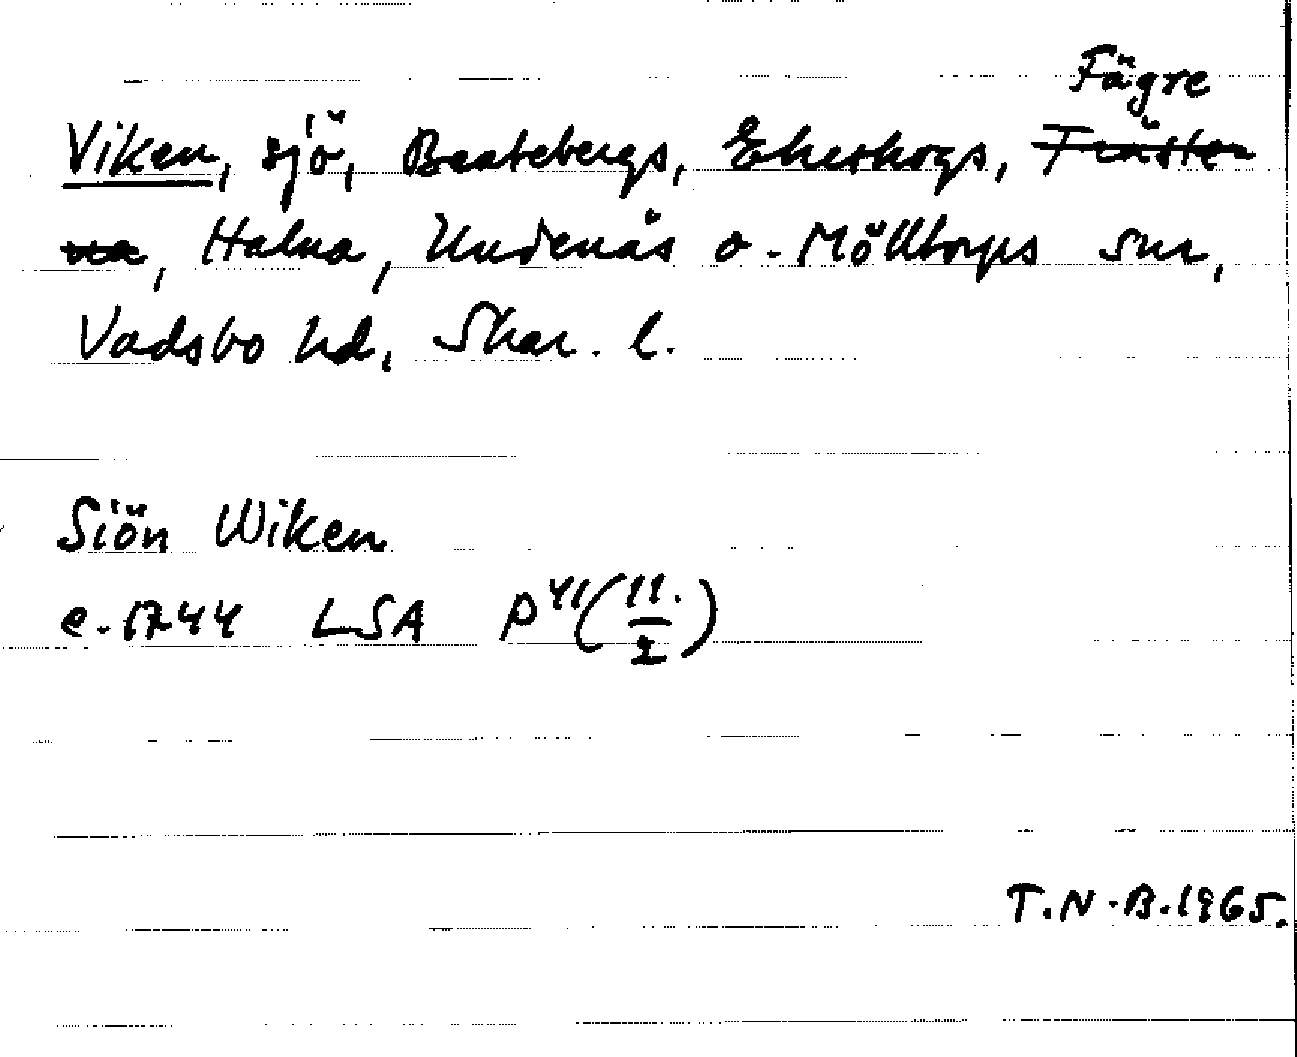 Fägre
Viken, sjö, Beatebergs, Ekeskogs, Fräste
na, Halna, Undenås o. Mölltorps snr,
Vadsbo hd, Skar. l.
Siön Wiken
c. 1744 LSA P 41 (11./I)
T.N.B. 1965.